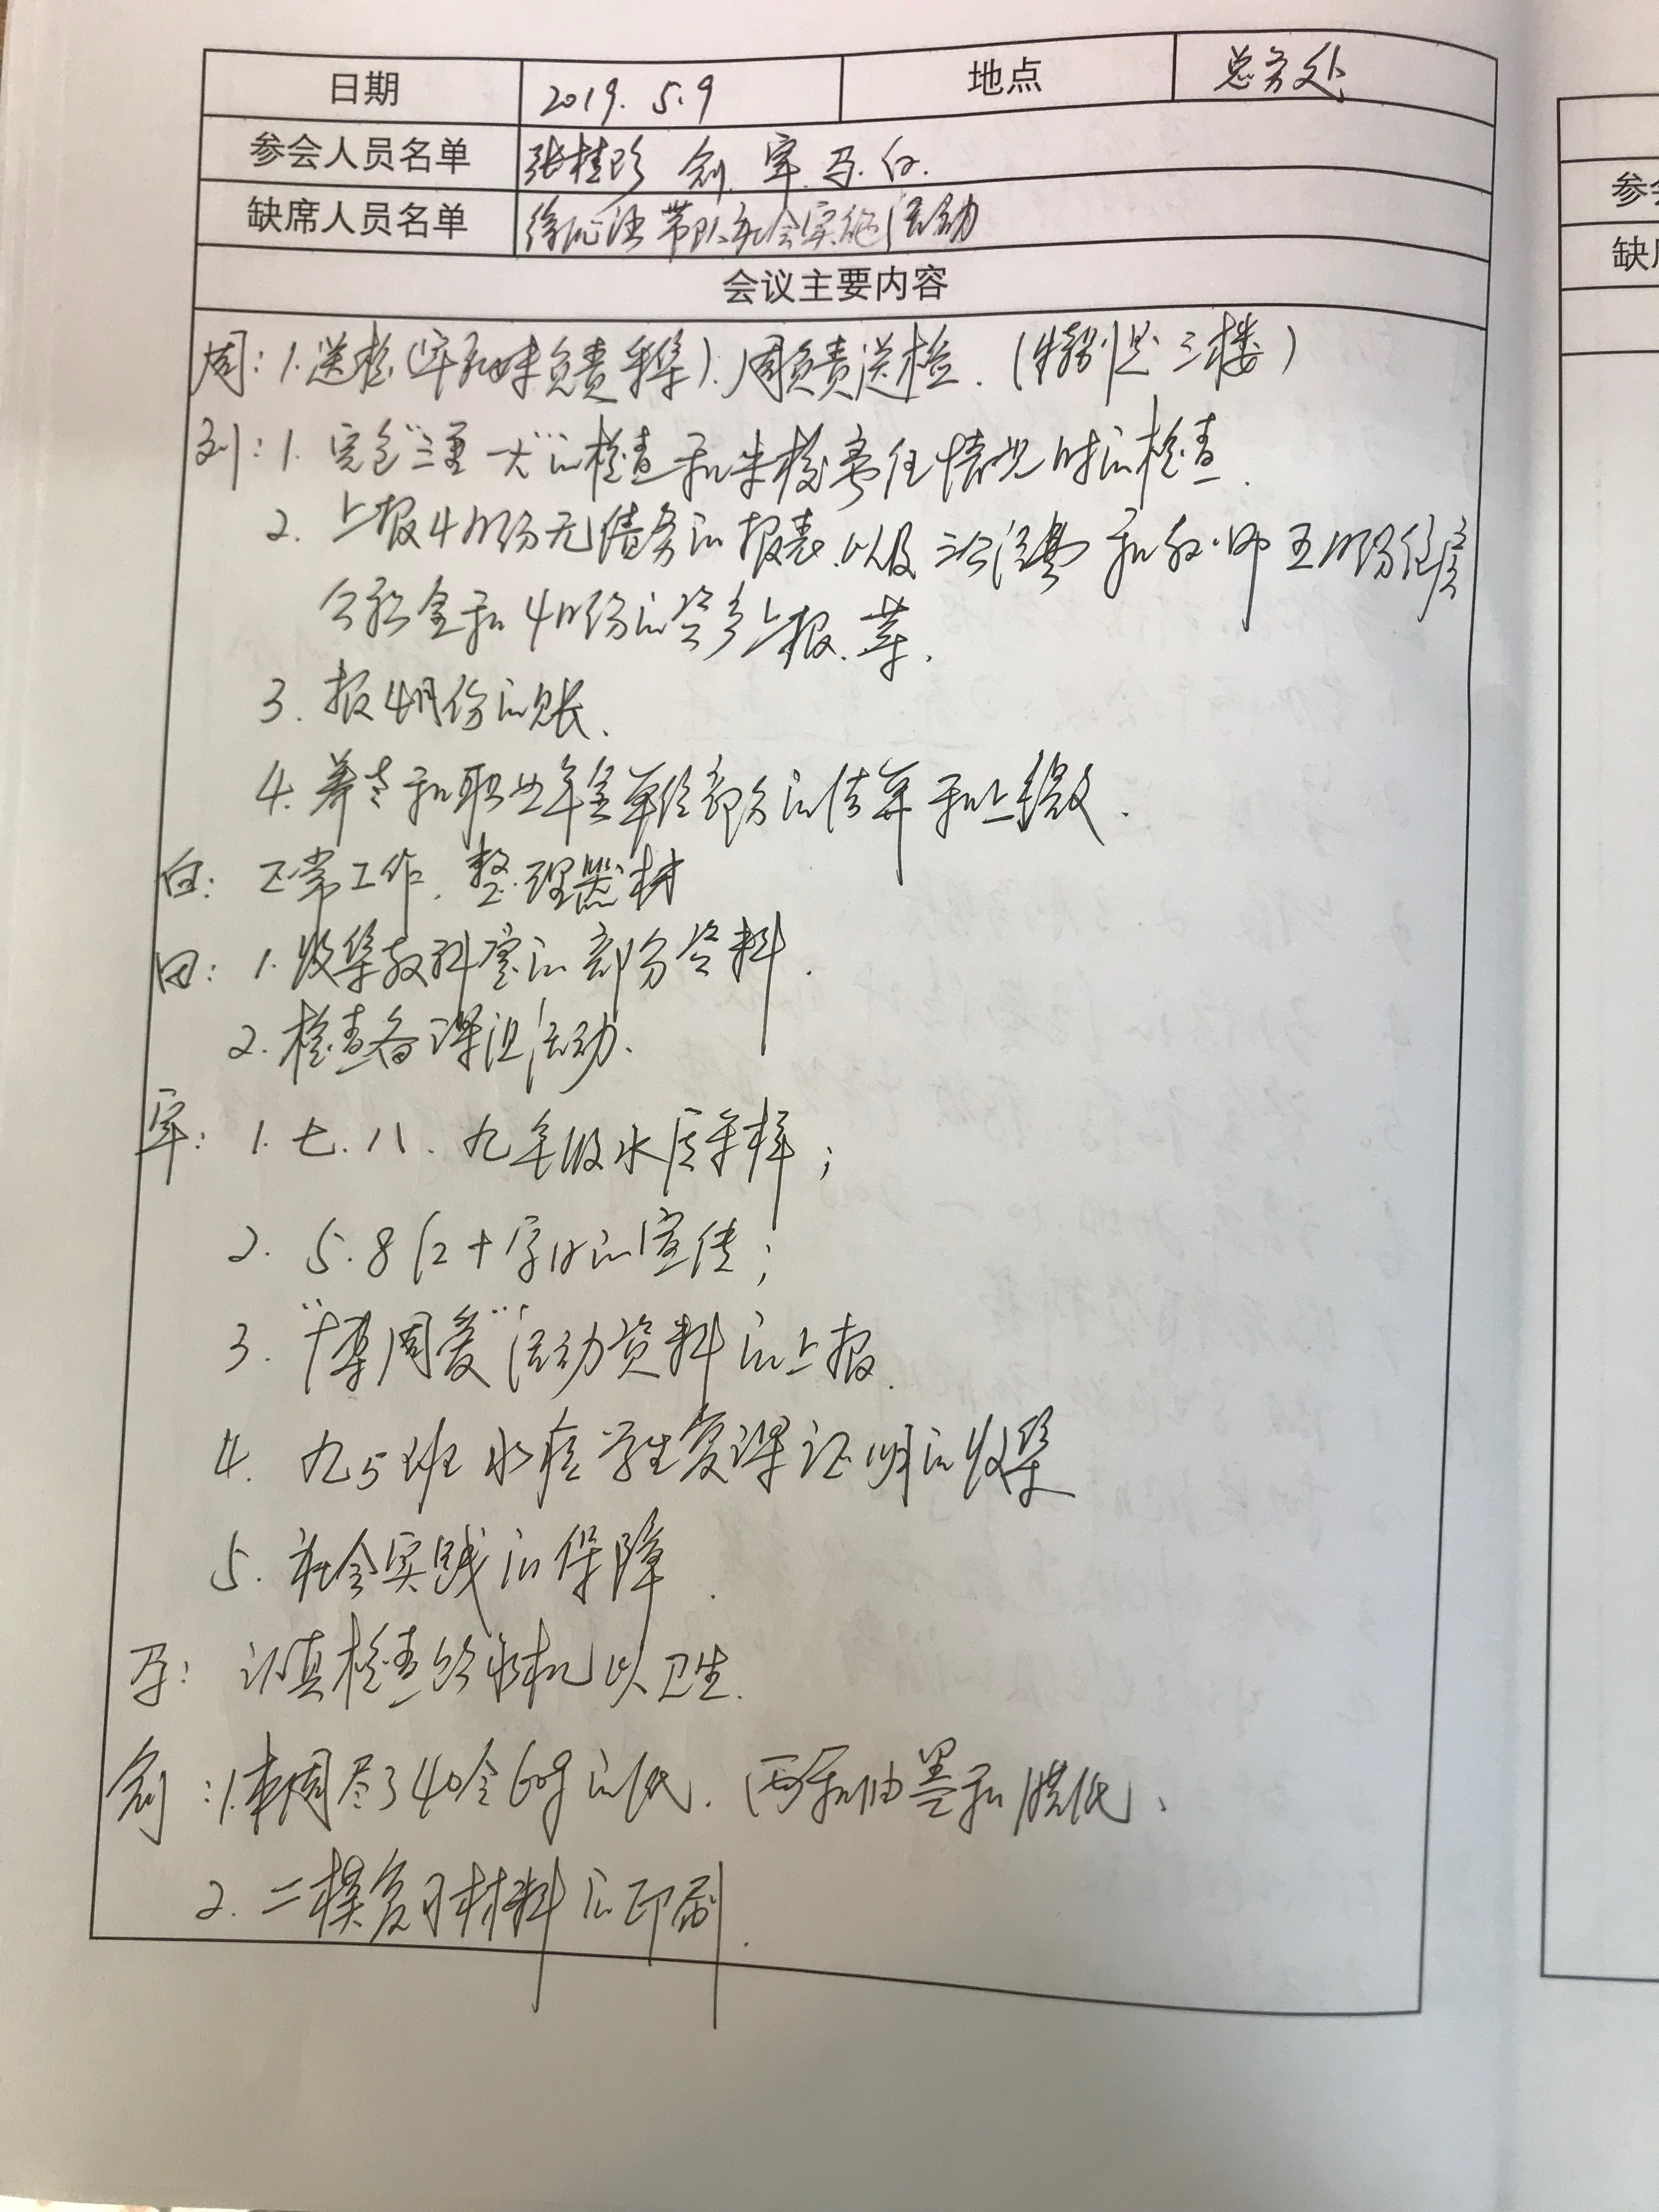 日期 2019.5.9 地点 总务处
参会人员名单 张桂珍
缺席人员名单 带队社会实践活动
会议主要内容
周:1.送检(负责采集).周负责送检.(特别是三楼)
刘:1.完色"三重一大"的检查和责任情况的检查.
2.上报4月份无债务的报表.以及三公经费和教师五月份住房
公积金和4月份的上报.等.
3.报4月份的账.
4.养老和职业年金单位部分的结算和上缴.
白:正常工作.整理器材
田:1.收集教科室的部分资料.
2.检查备课组活动.
军:1.七.八.九年级水质采样;
2.5.8红十字日的宣传;
3."博爱周"活动资料的上报.
4.九5班水痘学生复课证明的收集
5.社会实践的保障.
认真检查饮水机以卫生.
1.本周尽了40令60g的纸.两和油墨和腊纸、
2.二模复习材料的印刷.
参会
缺席